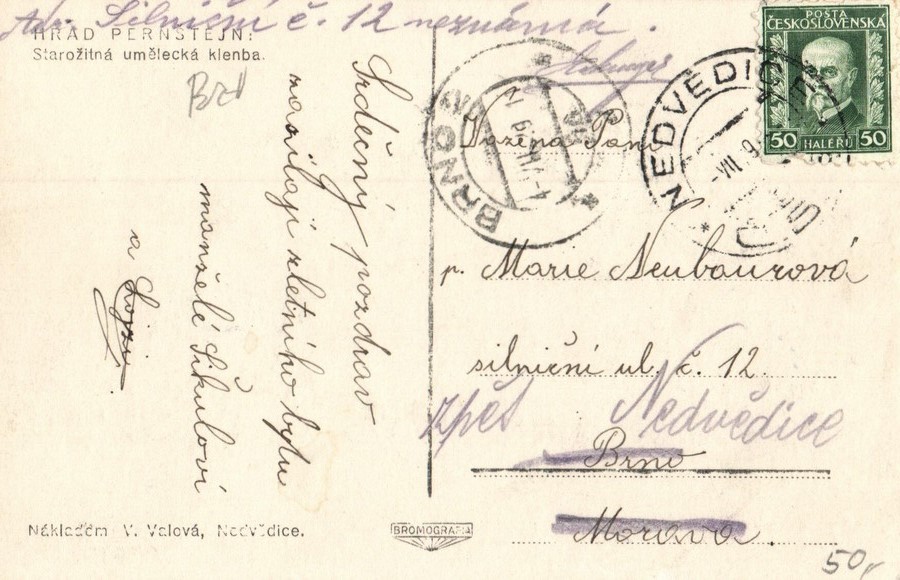 Adr. Silniční č. 12 neznámá.
HRAD PERNŠTEJN:
Starožitná umělecká klenba.
Brd
Srdečný pozdrav
zletního bytu
manželé Šikulovi
a Lojzi.
POSTA
ČESKOSLOVENSKÁ
50 HALÉŘŮ 50
NEDVĚDICE
VII
BRNO
VII
Vážená Paní
p. Marie Neubaurová
silniční ul. č. 12.
zpět Nedvědice
Brno
Morava.
Nákladem V. Valová, Nedvědice.
BROMOGRAFIA
50,